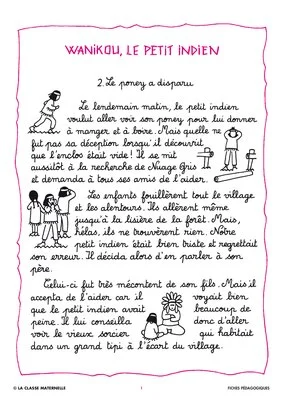 WANIKOU, LE PETIT INDIEN
2. Le poney a disparu
Le lendemain matin, le petit indien
voulut aller voir son poney pour lui donner
à manger et à boire. Mais quelle ne
fut pas sa déception lorsqu'il découvrit
que l'enclos était vide ! Il se mit
aussitôt à la recherche de Nuage Gris
et demanda à tous ses amis de l'aider.
Les enfants fouillèrent tout le village
et les alentours. Ils allèrent même
jusqu'à la lisière de la forêt. Mais,
hélas, ils ne trouvèrent rien. Notre
petit indien était bien triste et regrettait
son erreur. Il décida alors d'en parler à son
père.
Celui-ci fut très mécontent de son fils. Mais il
accepta de l'aider car il voyait bien
que le petit indien avait beaucoup de
peine. Il lui conseilla donc d'aller
voir le vieux sorcier qui habitait
dans un grand tipi à l'écart du village.
© LA CLASSE MATERNELLE 1 FICHES PÉDAGOGIQUES